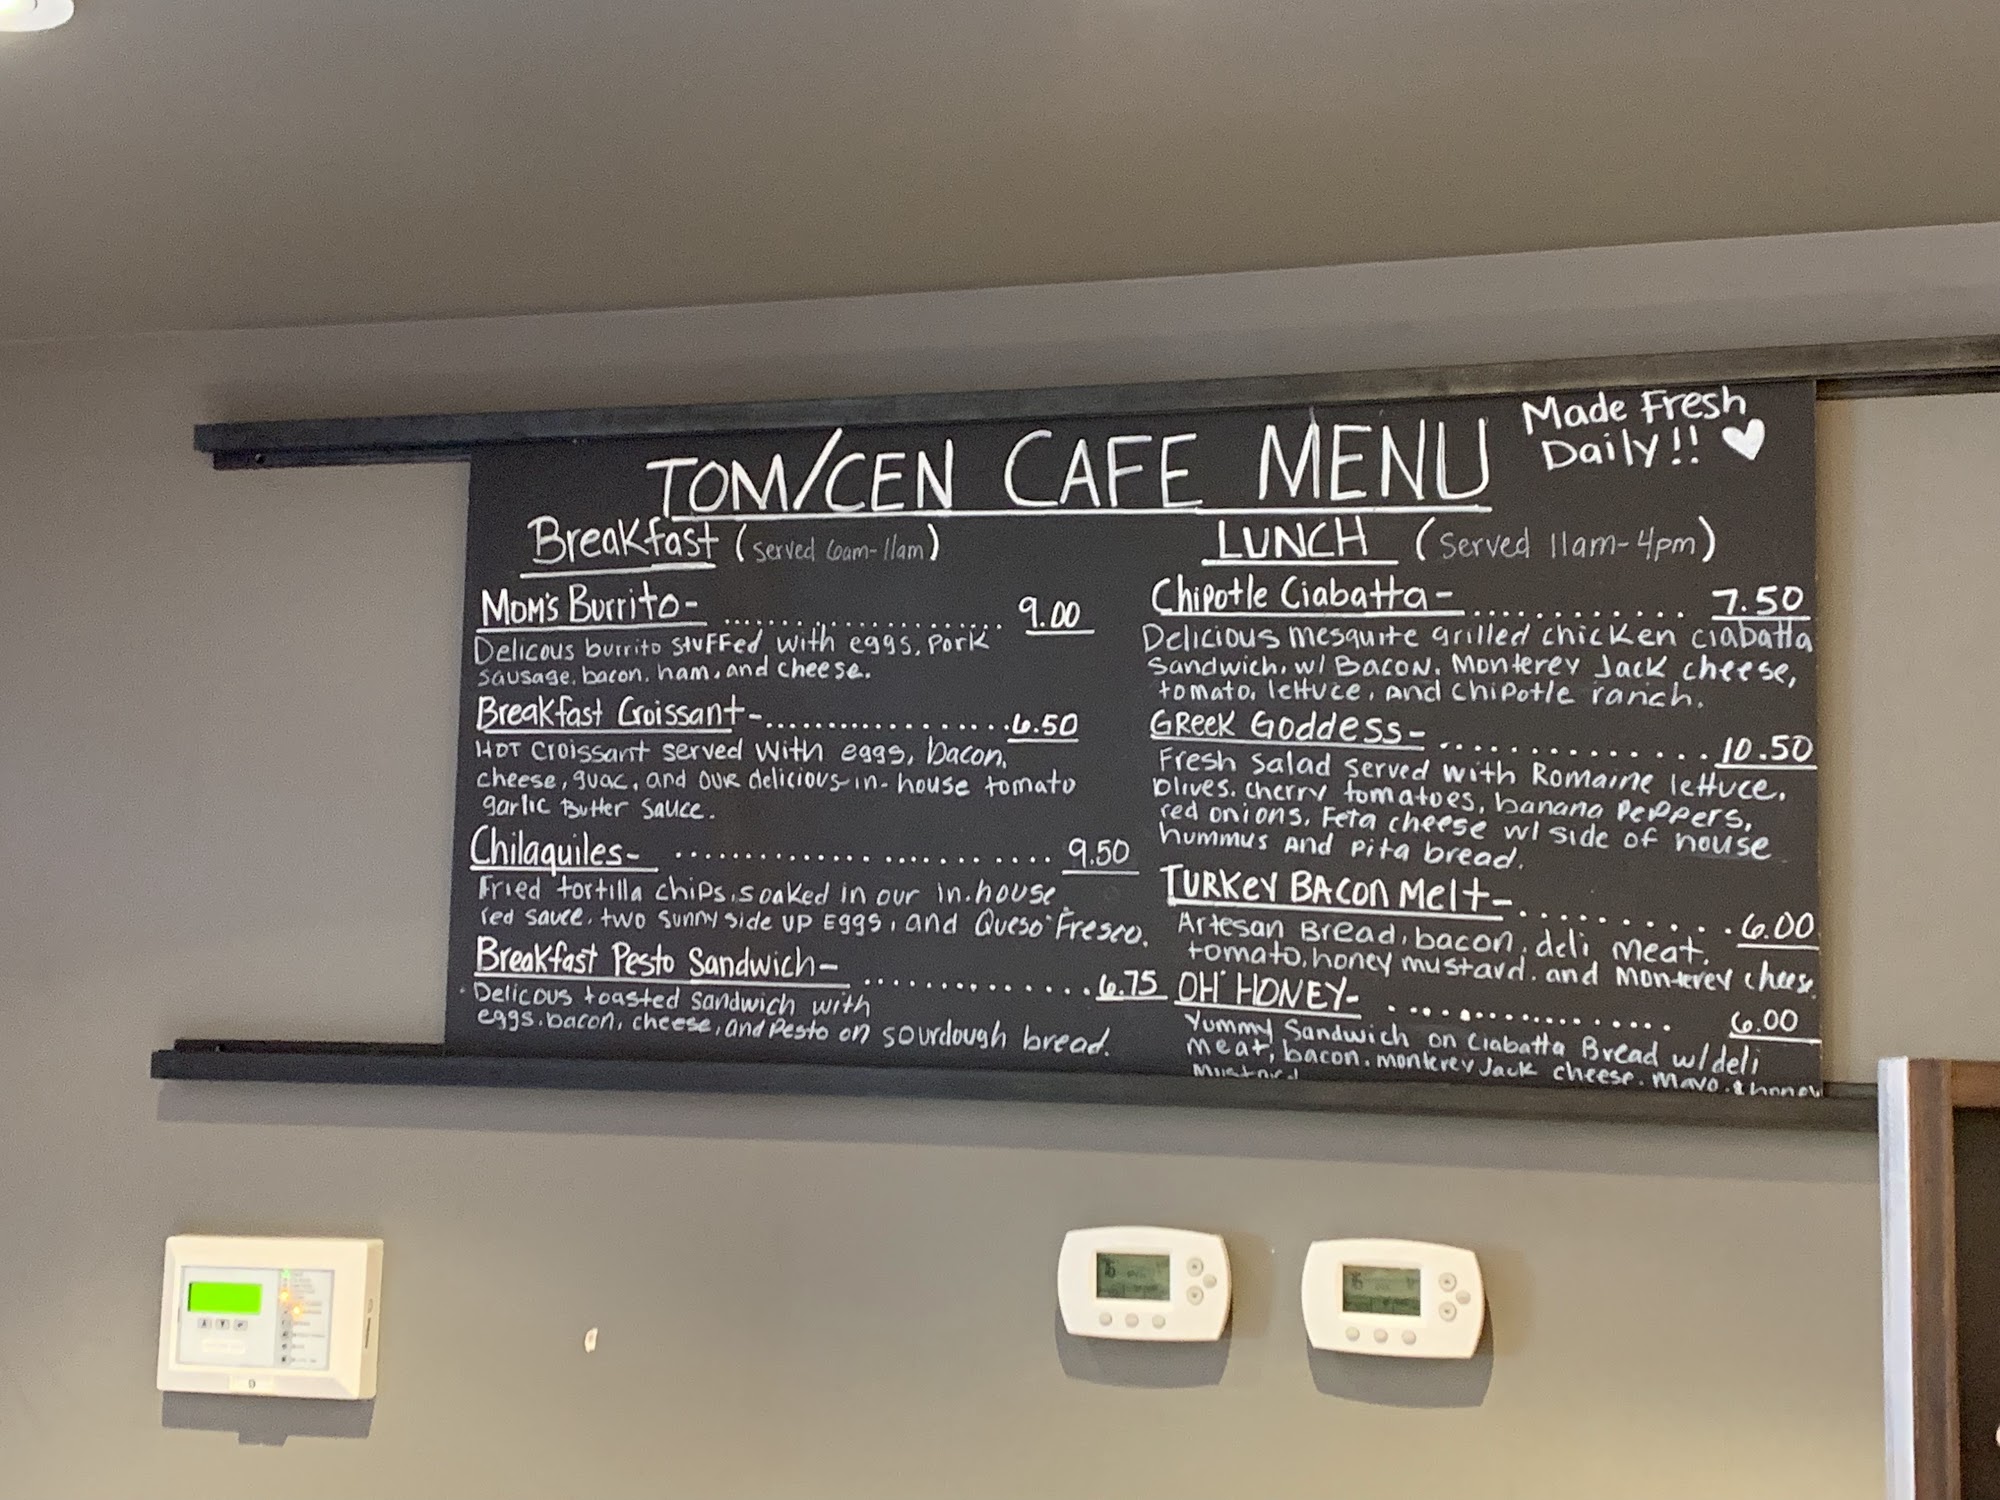 TOM/CEN CAFE MENU
Made Fresh
Daily!! ♥
Breakfast (served 6am-11am)
Mom's Burrito- .................... 9.00
Delicous burrito stuffed with eggs, pork
sausage, bacon, ham, and cheese.
Breakfast Croissant- .................. 6.50
Hot croissant served with eggs, bacon,
cheese, guac, and our delicious in-house tomato
garlic Butter sauce.
Chilaquiles- ........................ 9.50
Fried tortilla chips, soaked in our in-house
red sauce, two sunny side up eggs, and Queso Fresco.
Breakfast Pesto Sandwich- .............. 6.75
Delicous toasted sandwich with
eggs, bacon, cheese, and Pesto on sourdough bread.
LUNCH (served 11am-4pm)
Chipotle Ciabatta- ............ 7.50
Delicious mesquite grilled chicken ciabatta
sandwich, w/ Bacon, Monterey Jack cheese,
tomato, lettuce, and chipotle ranch.
Greek Goddess- ............... 10.50
Fresh salad served with Romaine lettuce,
olives, cherry tomatoes, banana peppers,
red onions, Feta cheese w/ side of house
hummus and pita bread.
Turkey Bacon Melt- ............ 6.00
Artesan Bread, bacon, deli meat,
tomato, honey mustard, and Monterey cheese.
OH HONEY- ................ 6.00
Yummy Sandwich on Ciabatta Bread w/ deli
meat, bacon, monterey Jack cheese, mayo, & honey
mustard